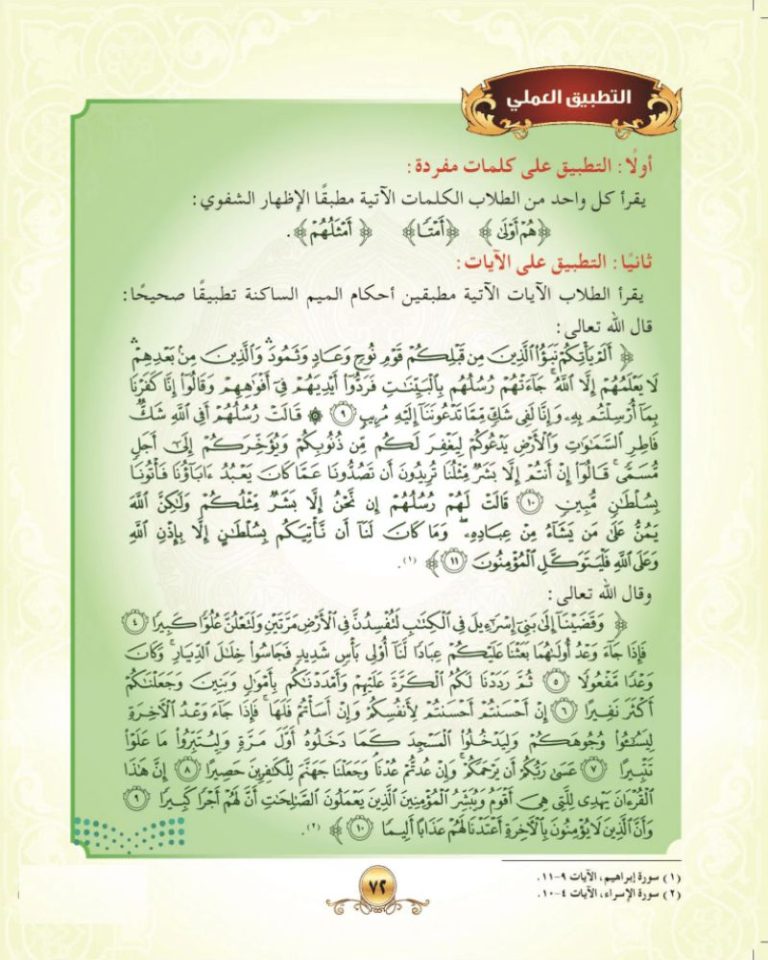 التطبيق العملي
أولًا: التطبيق على كلمات مفردة:
يقرأ كل واحد من الطلاب الكلمات الآتية مطبقًا الإظهار الشفوي:
﴿هُمۡ أَوۡلَىٰ﴾ ﴿أَمۡتٗا﴾ ﴿أَمۡثَلُهُمۡ﴾.
ثانيًا: التطبيق على الآيات:
يقرأ الطلاب الآيات الآتية مطبقين أحكام الميم الساكنة تطبيقًا صحيحًا:
قال الله تعالى:
﴿ أَلَمۡ يَأۡتِكُمۡ نَبَؤُاْ ٱلَّذِينَ مِن قَبۡلِكُمۡ قَوۡمِ نُوحٖ وَعَادٖ وَثَمُودَ وَٱلَّذِينَ مِنۢ بَعۡدِهِمۡ
لَا يَعۡلَمُهُمۡ إِلَّا ٱللَّهُۚ جَآءَتۡهُمۡ رُسُلُهُم بِٱلۡبَيِّنَٰتِ فَرَدُّوٓاْ أَيۡدِيَهُمۡ فِيٓ أَفۡوَٰهِهِمۡ وَقَالُوٓاْ إِنَّا كَفَرۡنَا
بِمَآ أُرۡسِلۡتُم بِهِۦ وَإِنَّا لَفِي شَكّٖ مِّمَّا تَدۡعُونَنَآ إِلَيۡهِ مُرِيبٖ ٩ ۞ قَالَتۡ رُسُلُهُمۡ أَفِي ٱللَّهِ شَكّٞ
فَاطِرِ ٱلسَّمَٰوَٰتِ وَٱلۡأَرۡضِۖ يَدۡعُوكُمۡ لِيَغۡفِرَ لَكُم مِّن ذُنُوبِكُمۡ وَيُؤَخِّرَكُمۡ إِلَىٰٓ أَجَلٖ
مُّسَمّٗىۚ قَالُوٓاْ إِنۡ أَنتُمۡ إِلَّا بَشَرٞ مِّثۡلُنَا تُرِيدُونَ أَن تَصُدُّونَا عَمَّا كَانَ يَعۡبُدُ ءَابَآؤُنَا فَأۡتُونَا
بِسُلۡطَٰنٖ مُّبِينٖ ١٠ قَالَتۡ لَهُمۡ رُسُلُهُمۡ إِن نَّحۡنُ إِلَّا بَشَرٞ مِّثۡلُكُمۡ وَلَٰكِنَّ ٱللَّهَ
يَمُنُّ عَلَىٰ مَن يَشَآءُ مِنۡ عِبَادِهِۦۖ وَمَا كَانَ لَنَآ أَن نَّأۡتِيَكُم بِسُلۡطَٰنٍ إِلَّا بِإِذۡنِ ٱللَّهِۚ
وَعَلَى ٱللَّهِ فَلۡيَتَوَكَّلِ ٱلۡمُؤۡمِنُونَ ١١ ﴾ (١).
وقال الله تعالى:
﴿ وَقَضَيۡنَآ إِلَىٰ بَنِيٓ إِسۡرَٰٓءِيلَ فِي ٱلۡكِتَٰبِ لَتُفۡسِدُنَّ فِي ٱلۡأَرۡضِ مَرَّتَيۡنِ وَلَتَعۡلُنَّ عُلُوّٗا كَبِيرٗا ٤
فَإِذَا جَآءَ وَعۡدُ أُولَىٰهُمَا بَعَثۡنَا عَلَيۡكُمۡ عِبَادٗا لَّنَآ أُوْلِي بَأۡسٖ شَدِيدٖ فَجَاسُواْ خِلَٰلَ ٱلدِّيَارِۚ وَكَانَ
وَعۡدٗا مَّفۡعُولٗا ٥ ثُمَّ رَدَدۡنَا لَكُمُ ٱلۡكَرَّةَ عَلَيۡهِمۡ وَأَمۡدَدۡنَٰكُم بِأَمۡوَٰلٖ وَبَنِينَ وَجَعَلۡنَٰكُمۡ
أَكۡثَرَ نَفِيرًا ٦ إِنۡ أَحۡسَنتُمۡ أَحۡسَنتُمۡ لِأَنفُسِكُمۡۖ وَإِنۡ أَسَأۡتُمۡ فَلَهَاۚ فَإِذَا جَآءَ وَعۡدُ ٱلۡأٓخِرَةِ
لِيَسُـُٔواْ وُجُوهَكُمۡ وَلِيَدۡخُلُواْ ٱلۡمَسۡجِدَ كَمَا دَخَلُوهُ أَوَّلَ مَرَّةٖ وَلِيُتَبِّرُواْ مَا عَلَوۡاْ
تَتۡبِيرًا ٧ عَسَىٰ رَبُّكُمۡ أَن يَرۡحَمَكُمۡۚ وَإِنۡ عُدتُّمۡ عُدۡنَاۚ وَجَعَلۡنَا جَهَنَّمَ لِلۡكَٰفِرِينَ حَصِيرًا ٨ إِنَّ هَٰذَا
ٱلۡقُرۡءَانَ يَهۡدِي لِلَّتِي هِيَ أَقۡوَمُ وَيُبَشِّرُ ٱلۡمُؤۡمِنِينَ ٱلَّذِينَ يَعۡمَلُونَ ٱلصَّٰلِحَٰتِ أَنَّ لَهُمۡ أَجۡرٗا كَبِيرٗا ٩
وَأَنَّ ٱلَّذِينَ لَا يُؤۡمِنُونَ بِٱلۡأٓخِرَةِ أَعۡتَدۡنَا لَهُمۡ عَذَابًا أَلِيمٗا ١٠ ﴾ (٢).
(١) سورة إبراهيم، الآيات ٩-١١.
(٢) سورة الإسراء، الآيات ٤-١٠.
٧٢